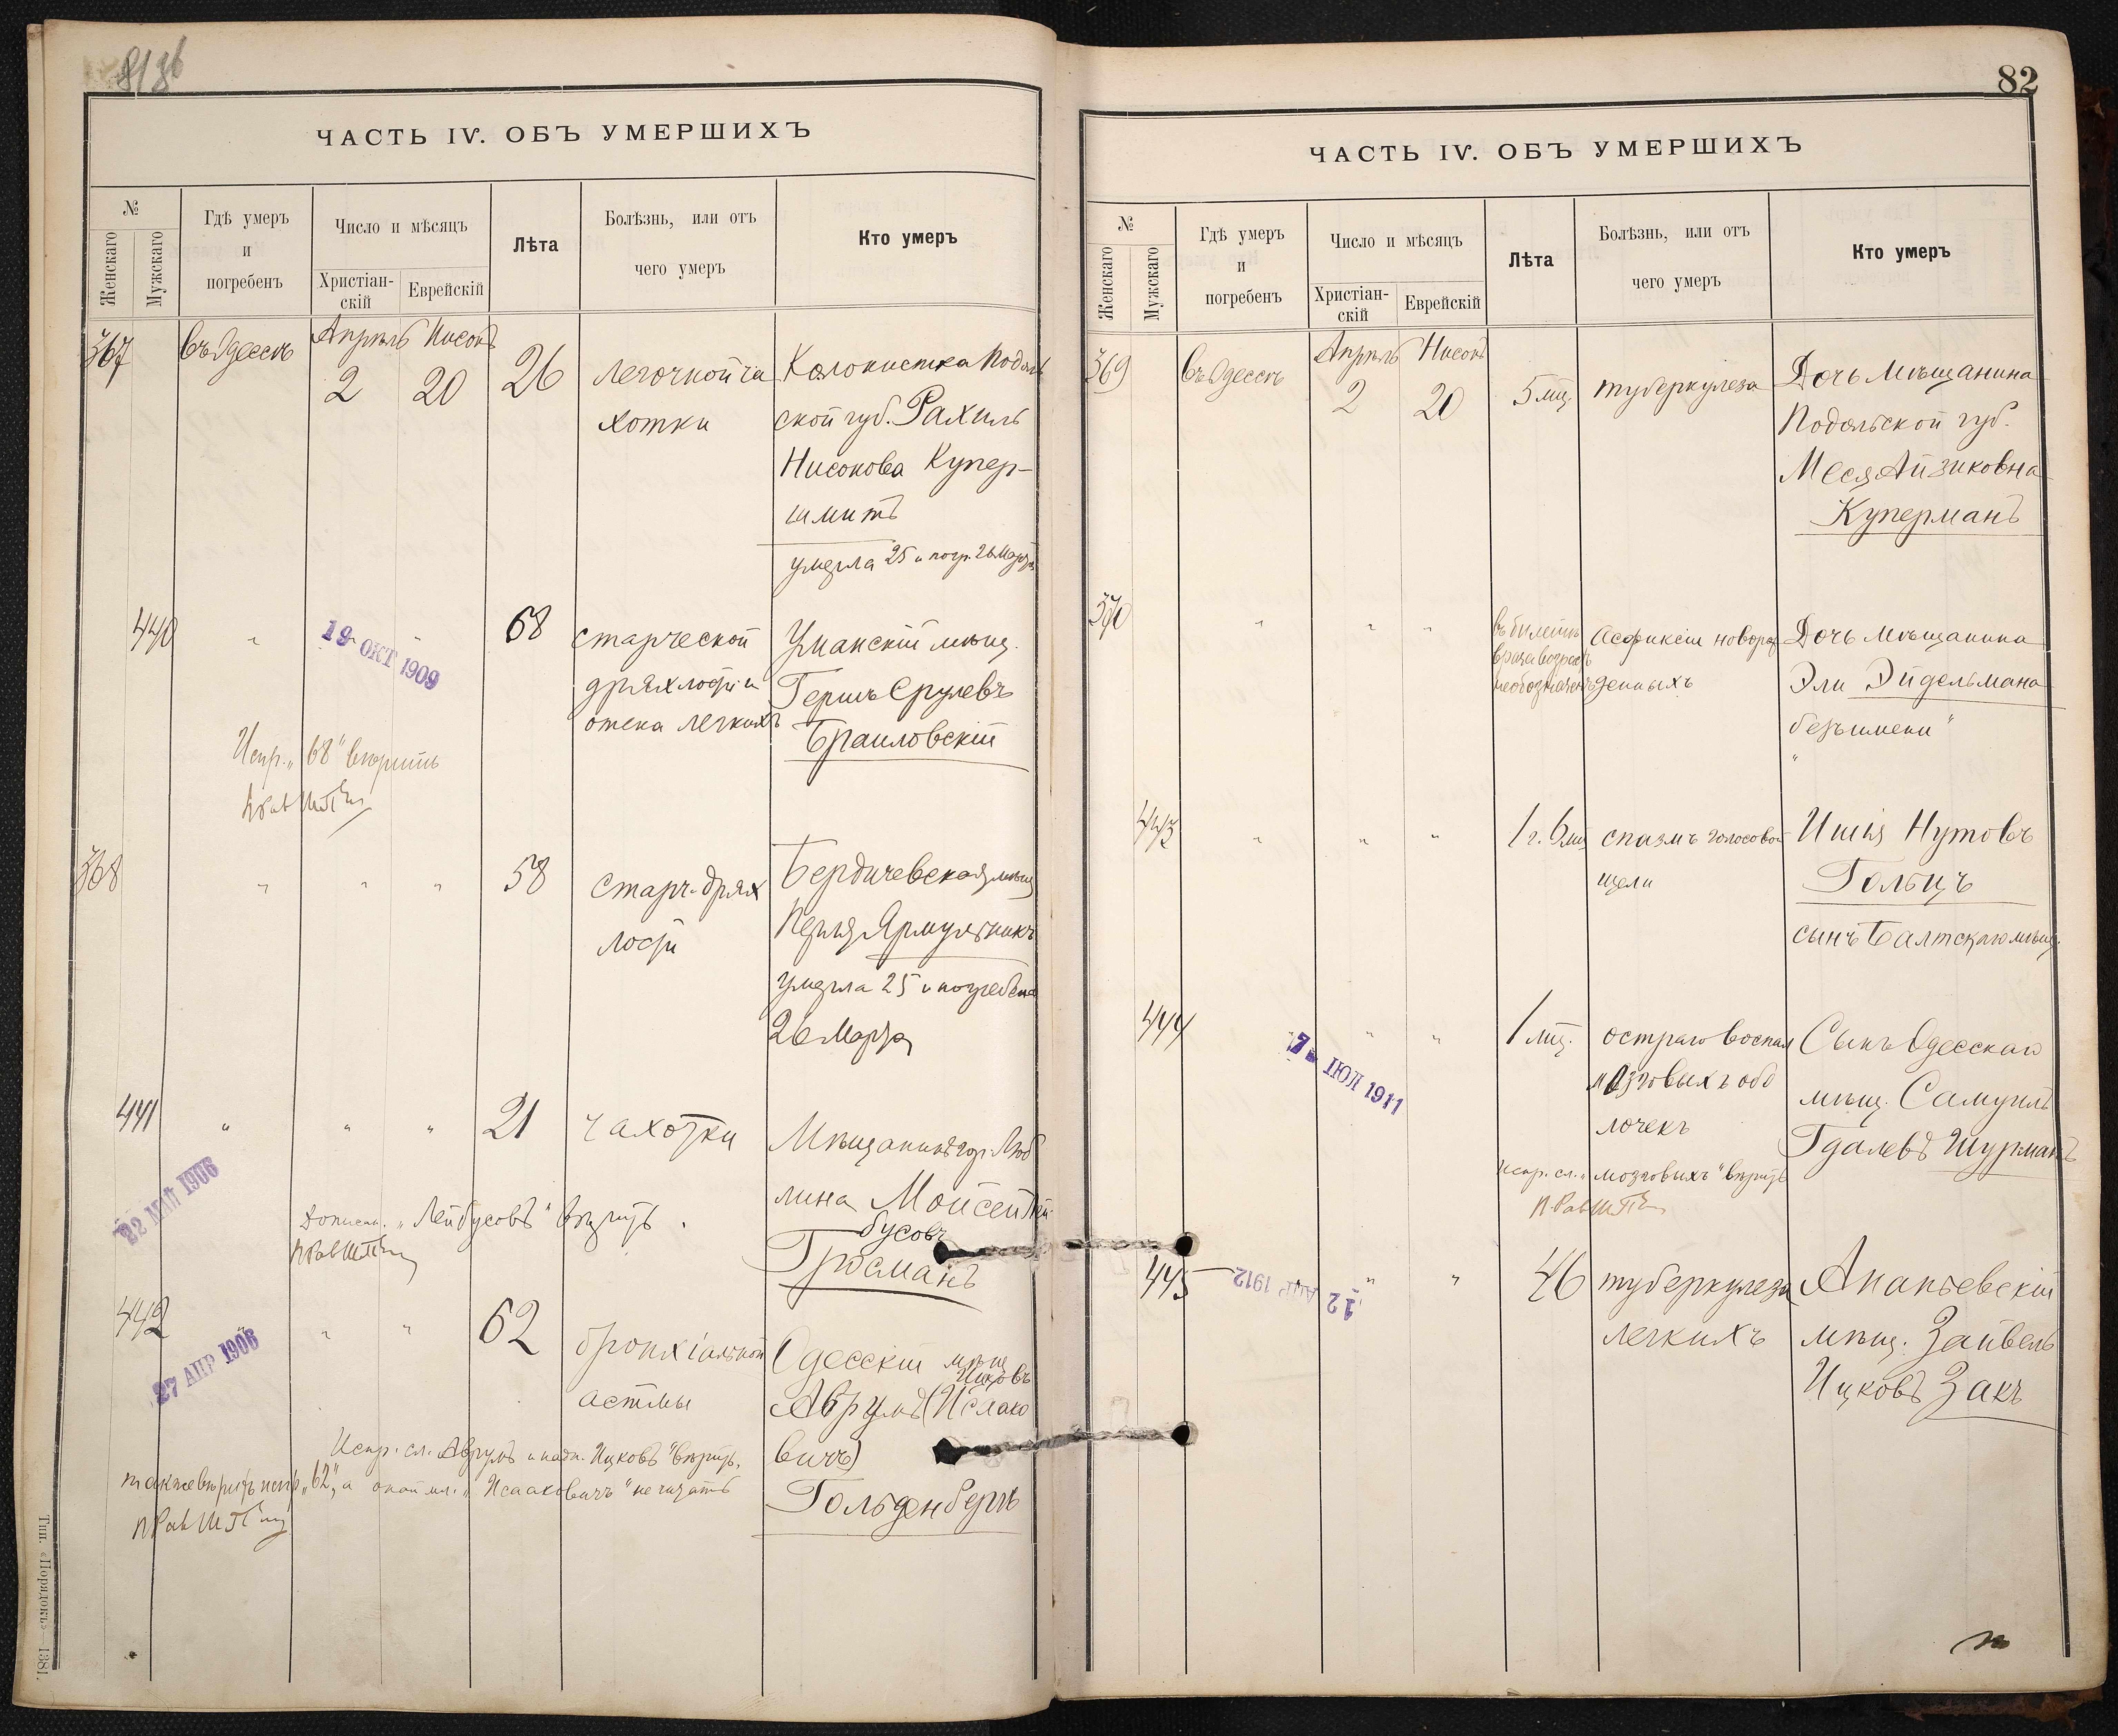 ЧАСТЬ IV. ОБЪ УМЕРШИХЪ
№
Женскаго
Мужскаго
Гдѣ умеръ
и
погребенъ
Число и мѣсяцъ
Христіан-
скій
Еврейскій
Лѣта
Болѣзнь, или отъ
чего умеръ
Кто умеръ
367
Въ Одессѣ
Апрѣль Нисонъ
2 20
26
легочной ча
хотки
Колонистка Подоль
ской губ. Рахиль
Нисонова Купер-
шмитъ
умерла 25 и погр. 26 Марта
440
"
19 ОКТ 1909
68
старческой
дряхлости и
отека легкихъ
Уманскій мѣщ.
Гершъ Срулевъ
Браиловскій
Испр. „68" вѣрить
368
" " "
58
старч. дрях
лости
Бердичевская мѣщ
Перля Ярмулникъ
умерла 25 и погребена
26 Марта
441
" " "
22 МАЙ 1906
21
чахотки
Мѣщанинъ гор. Люб
лина Мойсей Лей
бусовъ
Гросманъ
Дописан. „Лейбусовъ" вѣрить.
442
" " "
27 АПР 1906
62
бронхіальной
астмы
Одесскій мѣщ
Ицковъ
Аврумъ (Исаако
вичъ)
Гольденбергъ
Испр. сл. Аврумъ и надп. Ицковъ" вѣрить,
также вѣрить испр. „62", а „Исааковичъ" не читать
Тип. «Порядокъ»—1381.
82
ЧАСТЬ IV. ОБЪ УМЕРШИХЪ
№
Женскаго
Мужскаго
Гдѣ умеръ
и
погребенъ
Число и мѣсяцъ
Христіан-
скій
Еврейскій
Лѣта
Болѣзнь, или отъ
чего умеръ
Кто умеръ
369
Въ Одессѣ
Апрѣль Нисонъ
2 20
5 мц.
туберкулеза
Дочь мѣщанина
Подольской губ.
Меся Айзиковна
Куперманъ
370
" " "
въ билетѣ
врача возрастъ
необозначенъ
Асфиксіи новорож
денныхъ
Дочь мѣщанина
Эли Эйдельмана
безъ имени"
"
443
" " "
1 г. 6 мц
спазмъ голосовой
щели
Ишія Нутовъ
Гольцъ
сынъ Балтскаго мѣщ.
444
" "
7 ІЮЛ 1911
1 мц.
остраго воспал
мозговыхъ обо
лочекъ
Сынъ Одесскаго
мѣщ. Самуилъ
Гдалевъ Шурманъ
испр. сл. „мозговыхъ" вѣрить
445
" "
12 АПР 1912
46
туберкулеза
легкихъ
Ананьевскій
мѣщ. Зайвель
Ицковъ Закъ